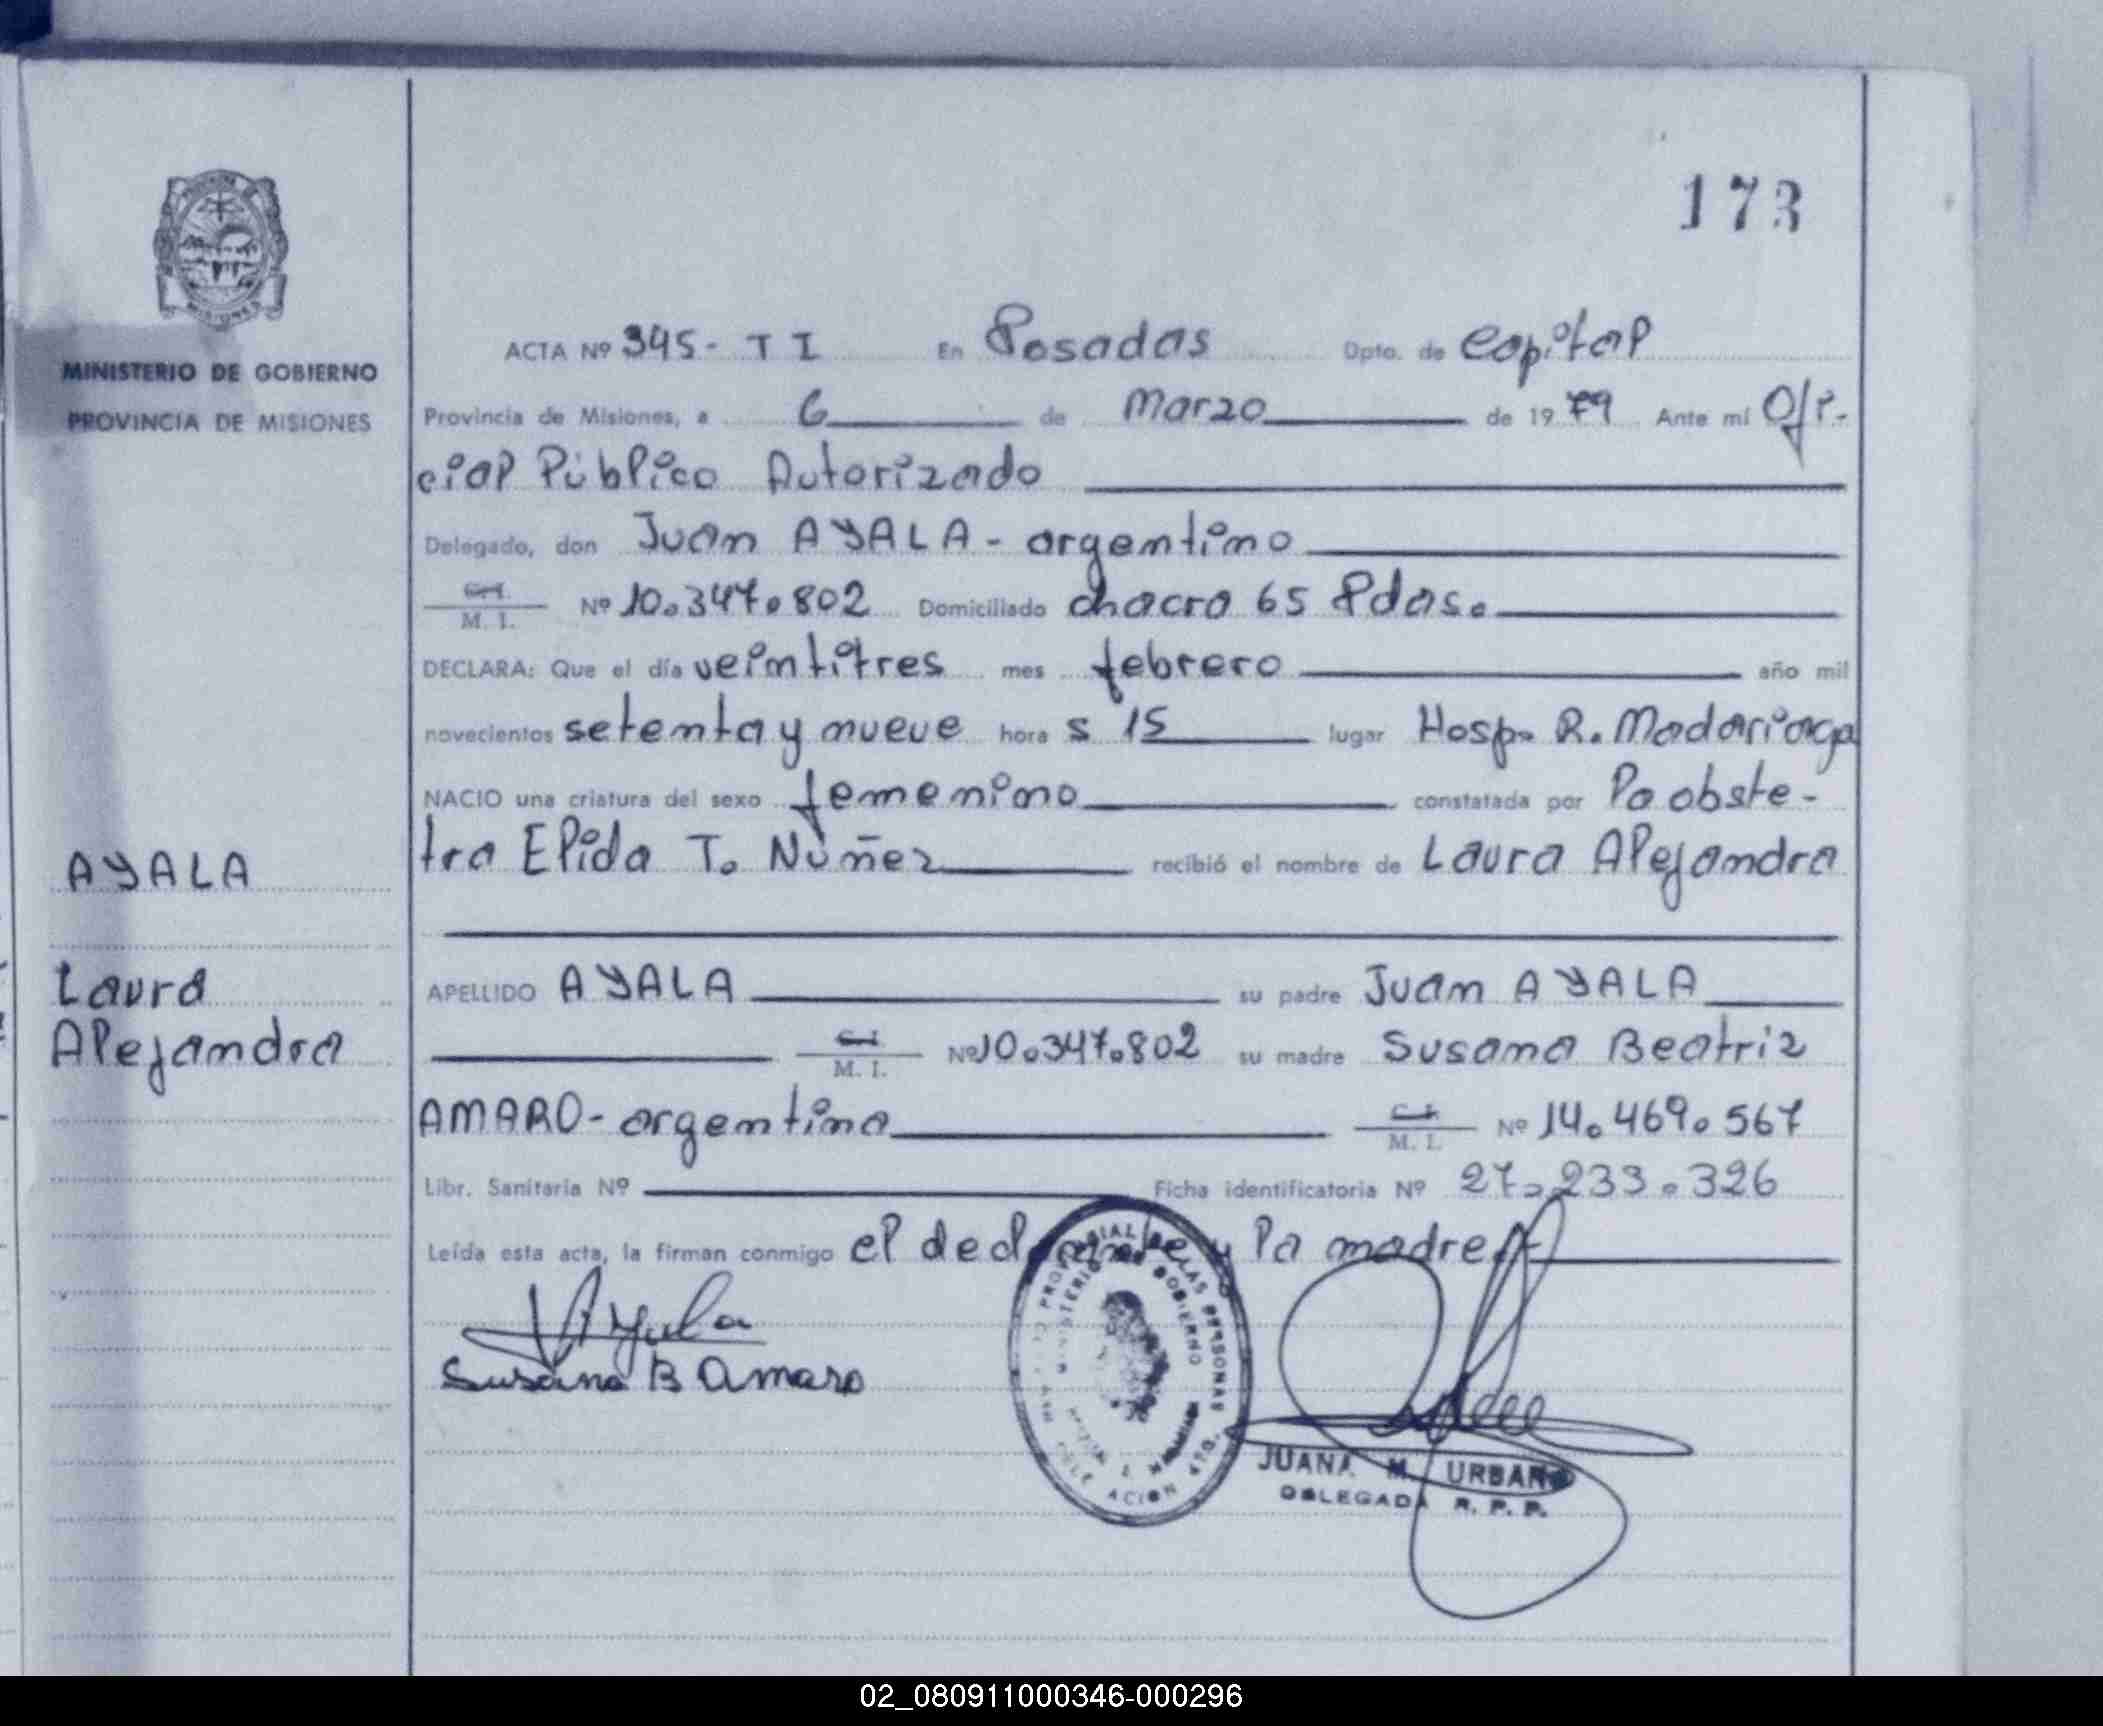 173
MINISTERIO DE GOBIERNO
PROVINCIA DE MISIONES
ACTA Nº 345- T I En Posadas Dpto. de Capital
Provincia de Misiones, a 6 de Marzo de 1979 Ante mí Ofi-
cial Público Autorizado
Delegado, don Juan AYALA - argentino
C.I. M. I. Nº 10.347.802 Domiciliado chacra 65 Pdas.
DECLARA: Que el día veintitres mes febrero año mil
novecientos setenta y nueve hora s 15 lugar Hosp. R. Madariaga
NACIO una criatura del sexo femenino constatada por la obste-
tra Elida T. Núñez recibió el nombre de Laura Alejandra
AYALA
Laura
Alejandra
APELLIDO AYALA su padre Juan AYALA
C.I. M. I. Nº 10.347.802 su madre Susana Beatriz
AMARO - argentina C.I. M. I. Nº 14.469.567
Libr. Sanitaria Nº Ficha identificatoria Nº 27.233.326
Leída esta acta, la firman conmigo el declarante y la madre.-
JAyala
Susana B Amaro
MINISTERIO DE GOBIERNO
DE LAS PERSONAS
JUANA M. URBANO
DELEGADA R. P. P.
02_080911000346-000296